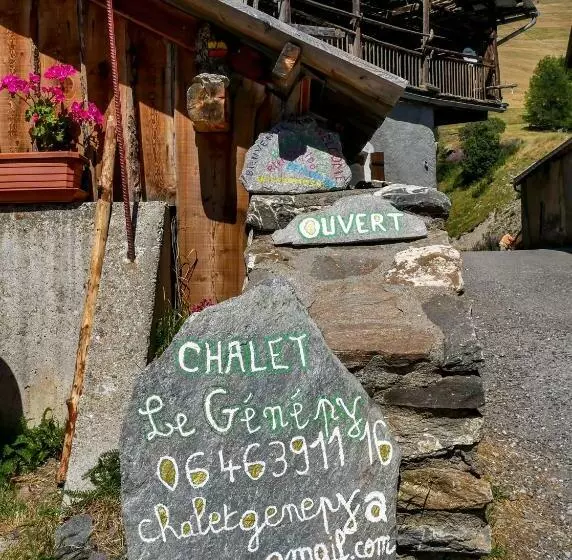 BIENVENUE
OUVERT
CHALET
Le Génépy
06 46 39 11 16
chaletgenepy@
gmail.com